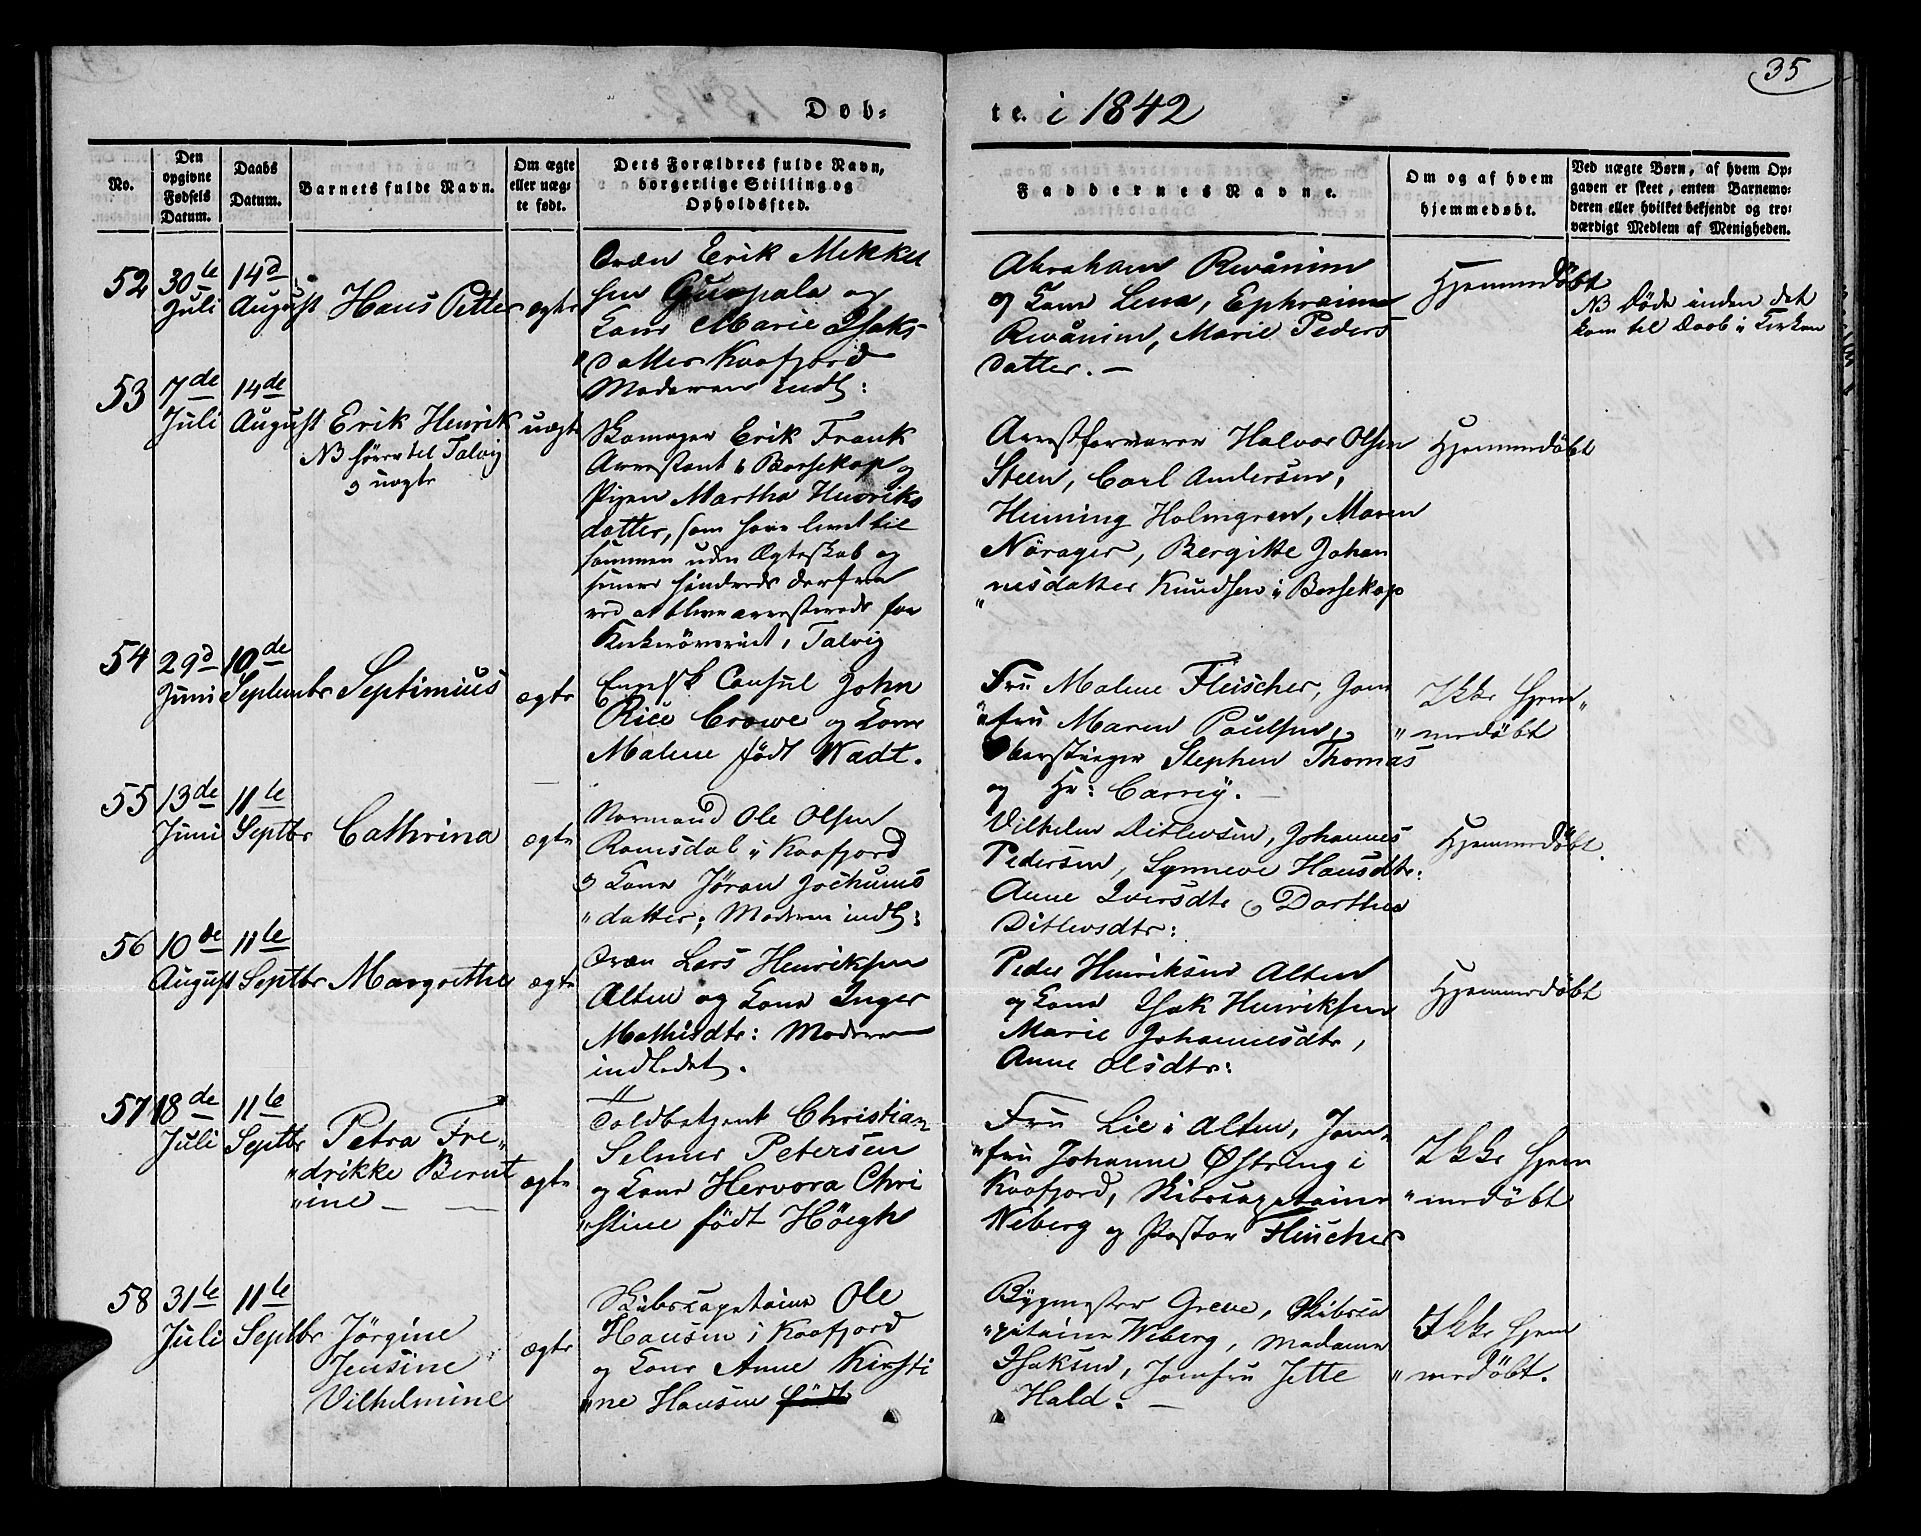 35
Døb-
te. i 1842
No.
Den opgivne Fødsels Datum.
Daabs Datum.
Barnets fulde Navn.
Om ægte eller uæg- te født.
Dets Forældres fulde Navn, borgerlige Stilling og Opholdssted.
Faddernes Navne.
Om og af hvem hjemmedøbt.
Ved uægte Børn, af hvem Op-
gaven er skeet, enten Barnemo-
deren eller hvilket bekjendt og tro-
værdigt Medlem af Menigheden.
52
30te Juli
14d August
Hans Petter
ægte
Qvæn Erik Mikkel
sen Guospala og
Kone Marie Isaks-
"datter Kaafjord
Moderen indl:
Abraham Revånim
og Kone Lena, Ephraim
Revånim, Marie Peders
datter. —
Hjemmedøbt
NB Døde inden det
kom til Daab i Kirken
53
7de Juli
14de August
Erik Henrik
NB hører til Talvig
uægte
Skomager Erik Frank
Arrestant i Bossekop og
Pigen Martha Henriks
datter, som have levet til
sammen uden Ægteskab og
ved at blive arresterede for
Talvig
Arrestforvarer Halvor Olsen
Steen, Carl Andersen,
Henning Holmgren, Maren
Nørager, Bergitte Johan
"nisdatter Knudsen i Bossekop
Hjemmedøbt
54
29d Juni
10de Septembr
Septimius
ægte
Engelsk Consul John
Rice Crowe og Kone
Malene født Wadt.
Fru Malene Fleischer, Jom
"fru Maren Paulsen,
Oberstiger Stephen Thomas
og Hr: Carrey.
Ikke Hjem-
"medøbt
55
13de Juni
11te Septbr
Cathrina
ægte
Normand Ole Olsen
Romsdal i Kaafjord
og Kone Jøran Jochums
"datter; Moderen indl:
Vilhelm Ditlevsen, Johannes
Pedersen, Synneve Hansdtr:
Anne Iversdtr og Dorthea
Ditlevsdtr:
Hjemmedøbt.
56
10de August
11te Septbr
Margrethe
ægte
Qvæn Lars Henriksen
Alten og Kone Inger
Mathisdtr: Moderen
indledet.
Peder Henriksen Alten
og Kone Isak Henriksen
Marie Johannesdtr,
Anne Olsdtr:
Hjemmedøbt
57
18de Juli
11te Septbr
Petra Fre-
"drikke Bernt
"ine —
ægte
Toldbetjent Christian
Selmer Petersen
og Kone Hervora Chri
"stine født Høegh
Fru Lie i Alten, Jom-
"fru Johanne Østring i
Kaafjord, Skibscapitaine
Weberg og Pastor Fleischer
Ikke Hjem
"medøbt
58
31te Juli
11te Septbr
Jørgine
Jensine
Vilhelmine
ægte
Skibscapitaine Ole
Hansen i Kaafjord
og Kone Anne Kirsti
"ne Hansen født
Bygmester Greve, Skibsca
"pitaine Weberg, Madame
Isaksen, Jomfru Jette
Hald. —
Ikke Hjem
"medøbt.